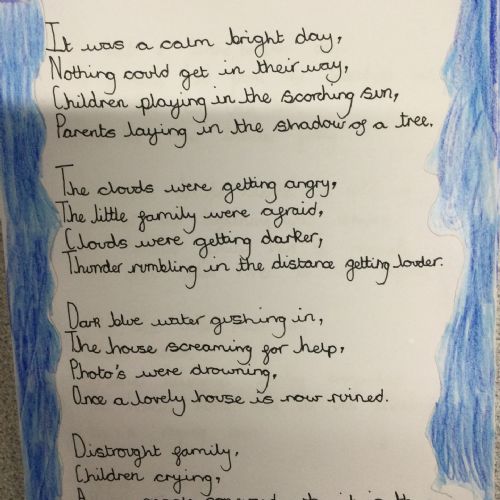 It was a calm bright day,
Nothing could get in their way,
Children playing in the scorching sun,
Parents laying in the shadow of a tree.
The clouds were getting angry,
The little family were afraid,
Clouds were getting darker,
Thunder rumbling in the distance getting louder.
Dark blue water gushing in,
The house screaming for help,
Photo's were drowning,
Once a lovely house is now ruined.
Distrought family,
Children crying,